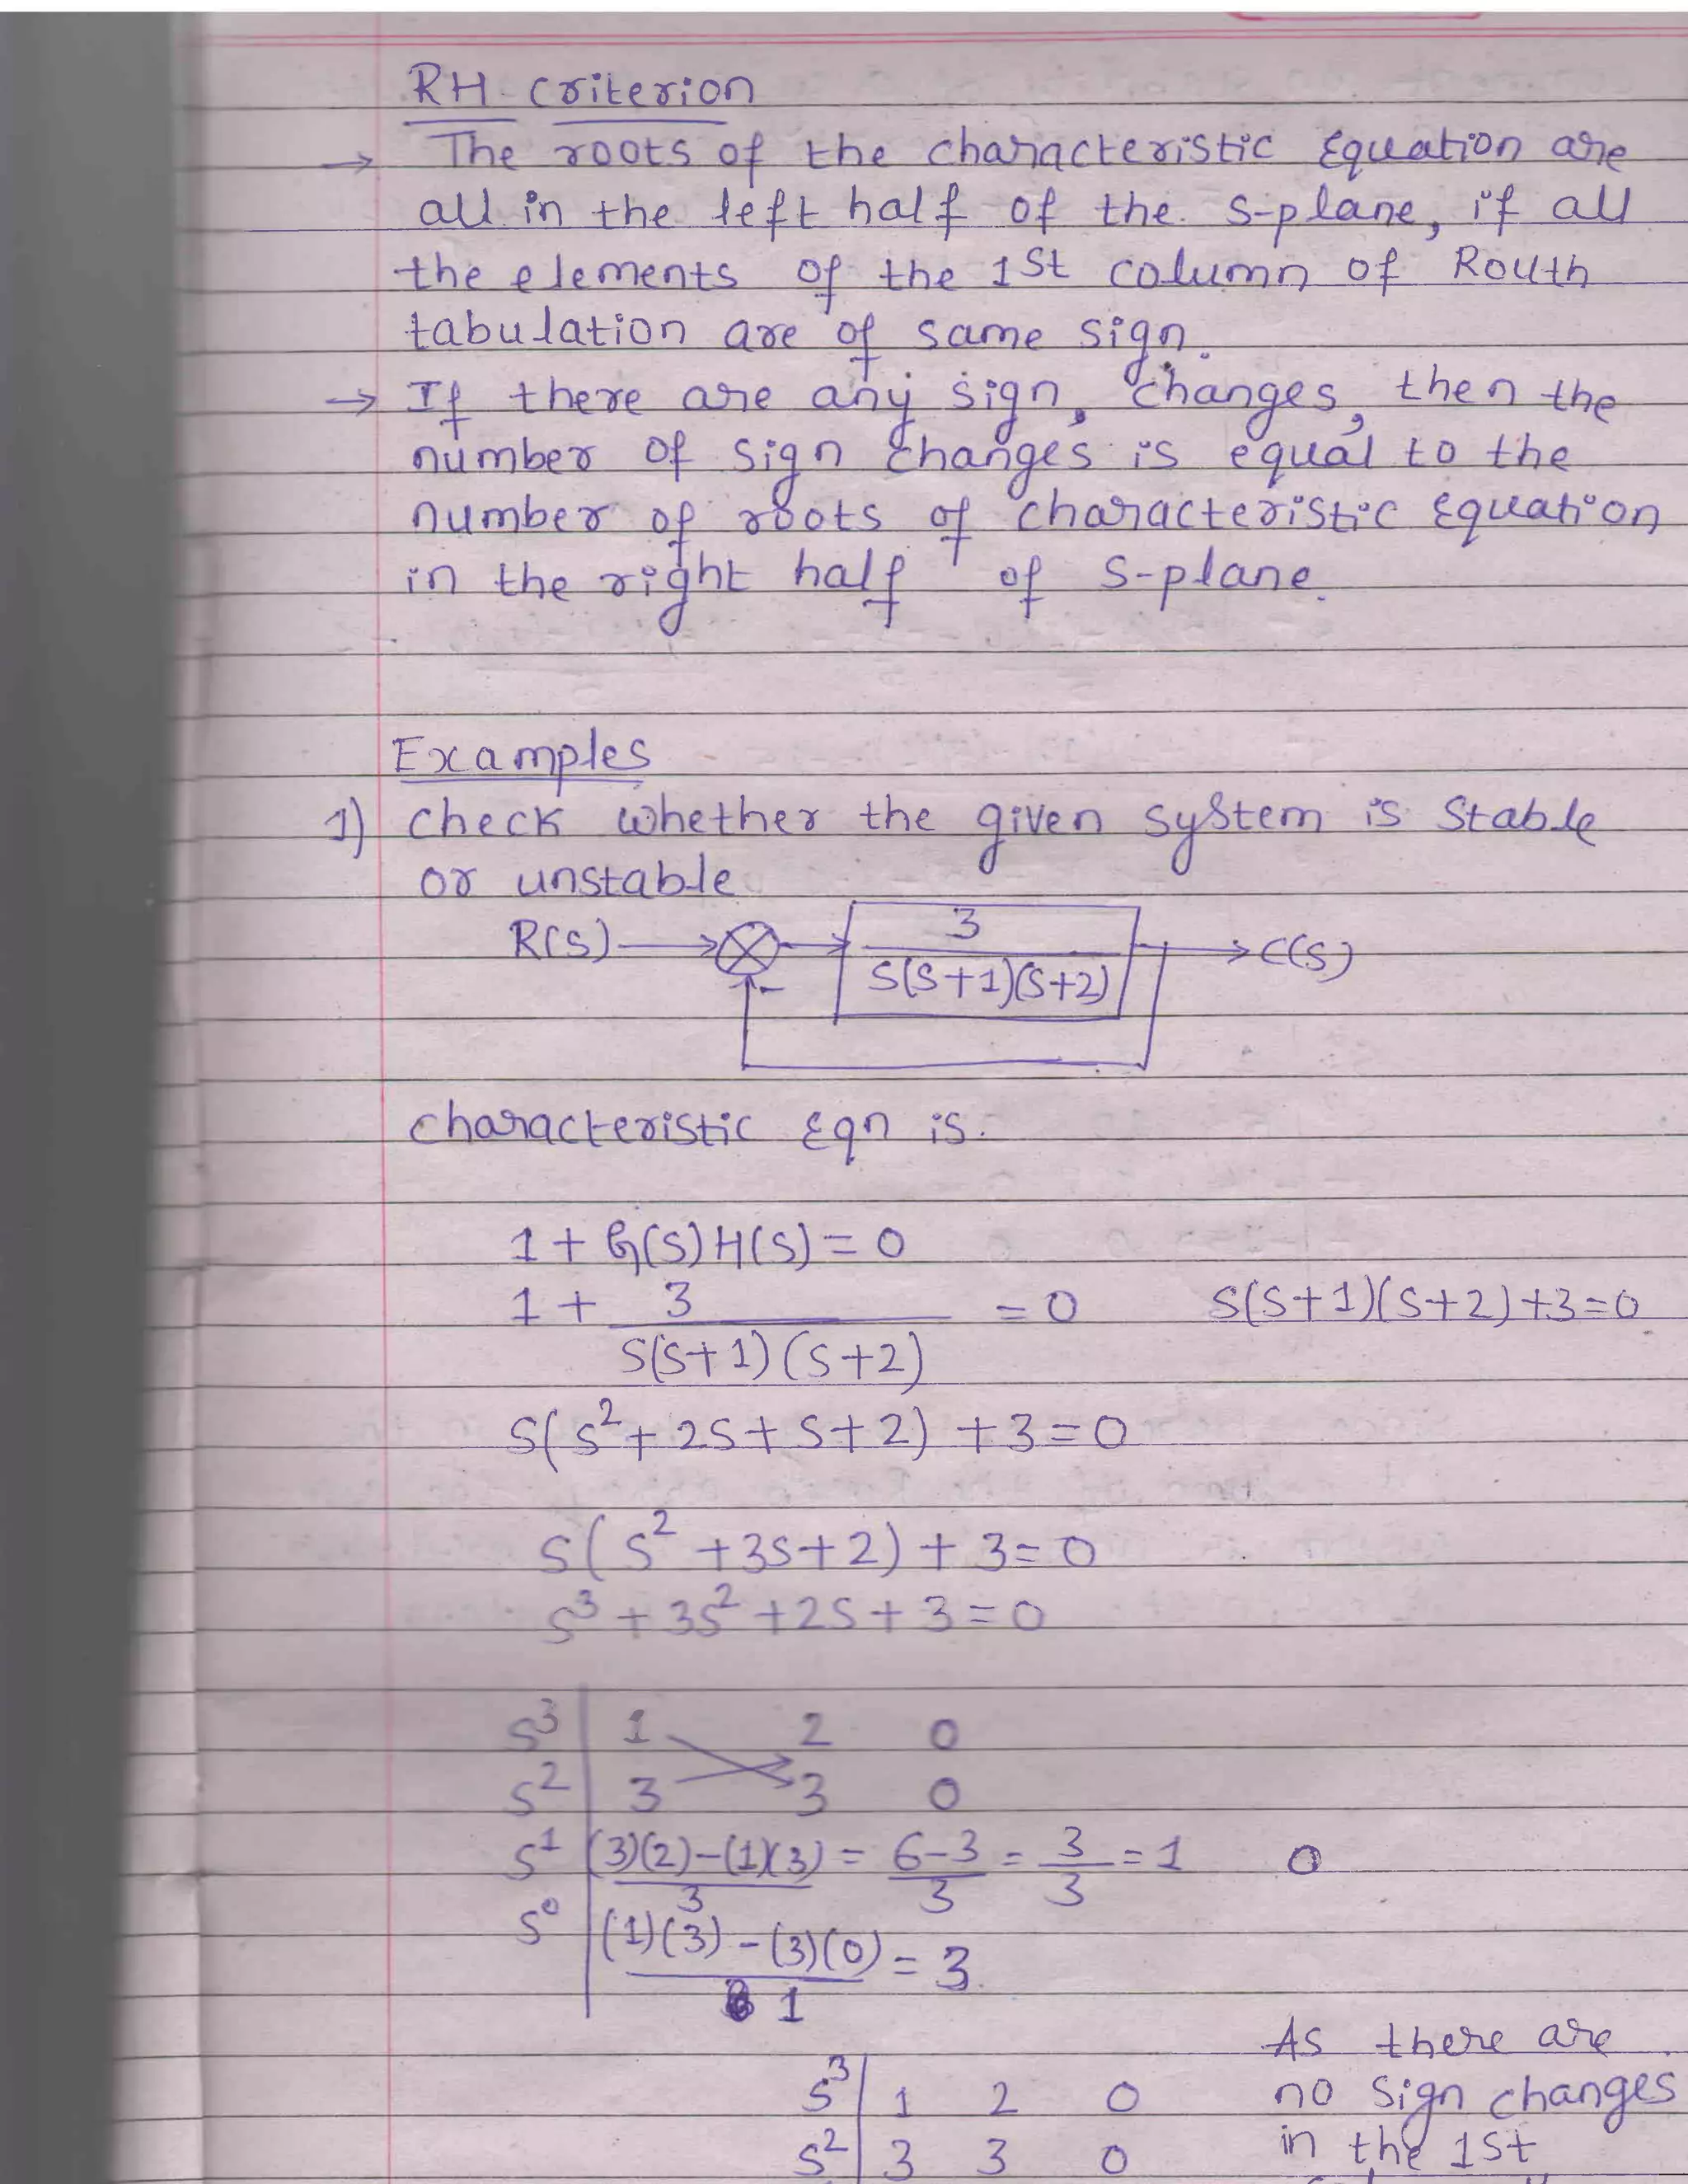 RH criterion
→ The roots of the characteristic Equation are
all in the left half of the s-plane, if all
the elements of the 1st column of Routh
tabulation are of same sign.
→ If there are any sign, changes, then the
number of sign changes is equal to the
number of roots of characteristic Equation
in the right half of s-plane.
Examples
1) check whether the given system is stable
or unstable
R(s) 3 / s(s+1)(s+2) C(s)
-
characteristic Eqn is.
1 + G(s) H(s) = 0
1 + 3 / s(s+1)(s+2) = 0 s(s+1)(s+2)+3=0
s(s²+2s+s+2) +3=0
s(s²+3s+2)+3=0
s³+3s²+2s+3=0
s³ | 1 2 0
s² | 3 3 0
s¹ | (3)(2)-(1)(3) / 3 = 6-3 / 3 = 3 / 3 = 1 0
s⁰ | (1)(3)-(3)(0) / 1 = 3
As there are
s³ | 1 2 0 no sign changes
s² | 3 3 0 in the 1st